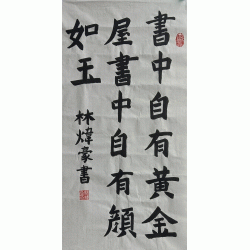 書中自有黃金
屋書中自有顏
如玉
林煒豪書